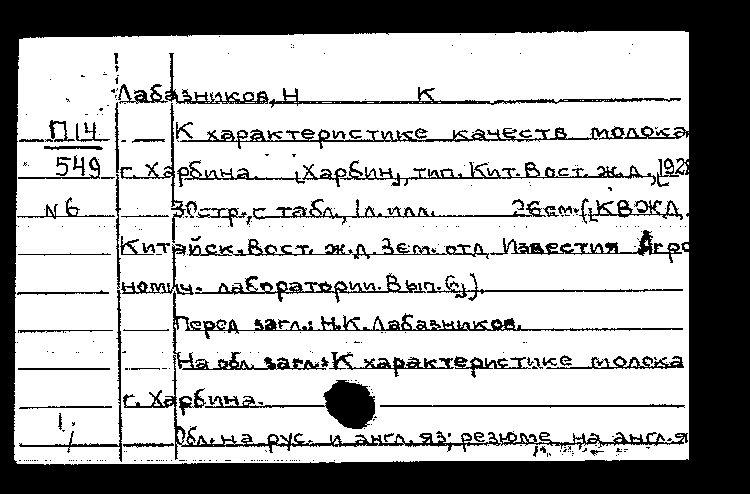 Лабазников, Н К
П14 К характеристике качеств молока
549 г. Харбина. [Харбин], тип. Кит. Вост. ж. д., [1928
N 6 30 стр., с табл., 1 л. илл. 26 см. ([КВЖД.
Китайск. Вост. ж. д. Зем. отд. Известия Агро
номич. лаборатории. Вып. 6]).
Перед загл.: Н. К. Лабазников.
На обл. загл.: К характеристике молока
г. Харбина.
Обл. на рус. и англ. яз; резюме на англ. я